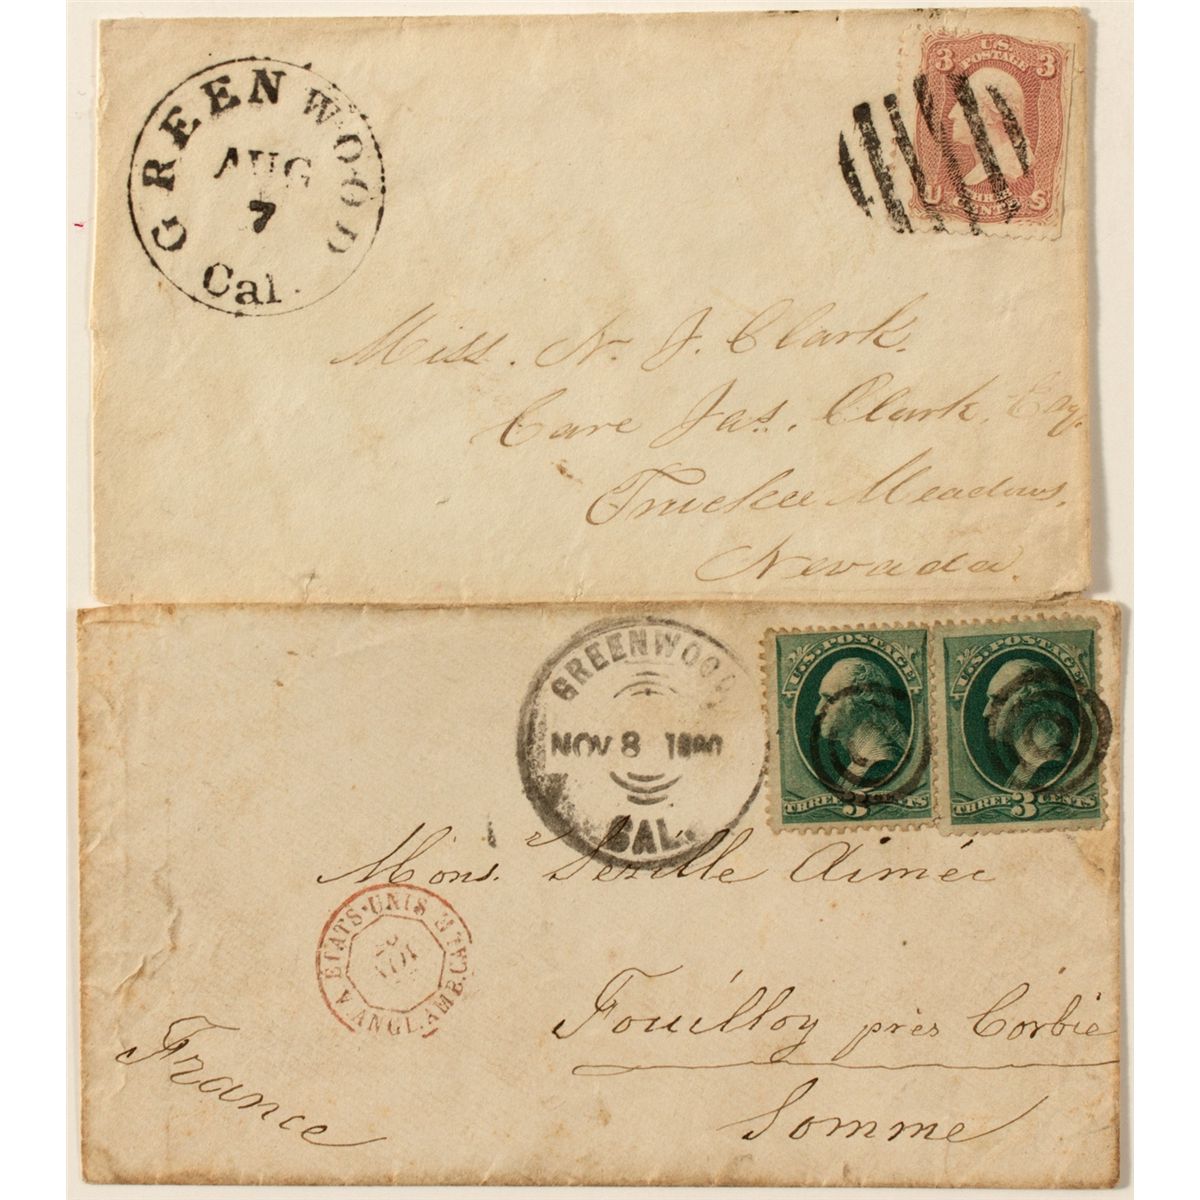 GREENWOOD
AUG
7
Cal.
U.S.
POSTAGE
3 3
U THREE S
CENTS
Miss. N. J. Clark.
Care Jas. Clark, Esq.
Truckee Meadows.
Nevada.
GREENWOOD
NOV 8 1880
CAL.
U.S. POSTAGE
THREE 3 CENTS
U.S. POSTAGE
THREE 3 CENTS
Mons. Aimée
ETATS-UNIS
A ANGL.AMB.CALE
Fouilloy près Corbie
France
Somme